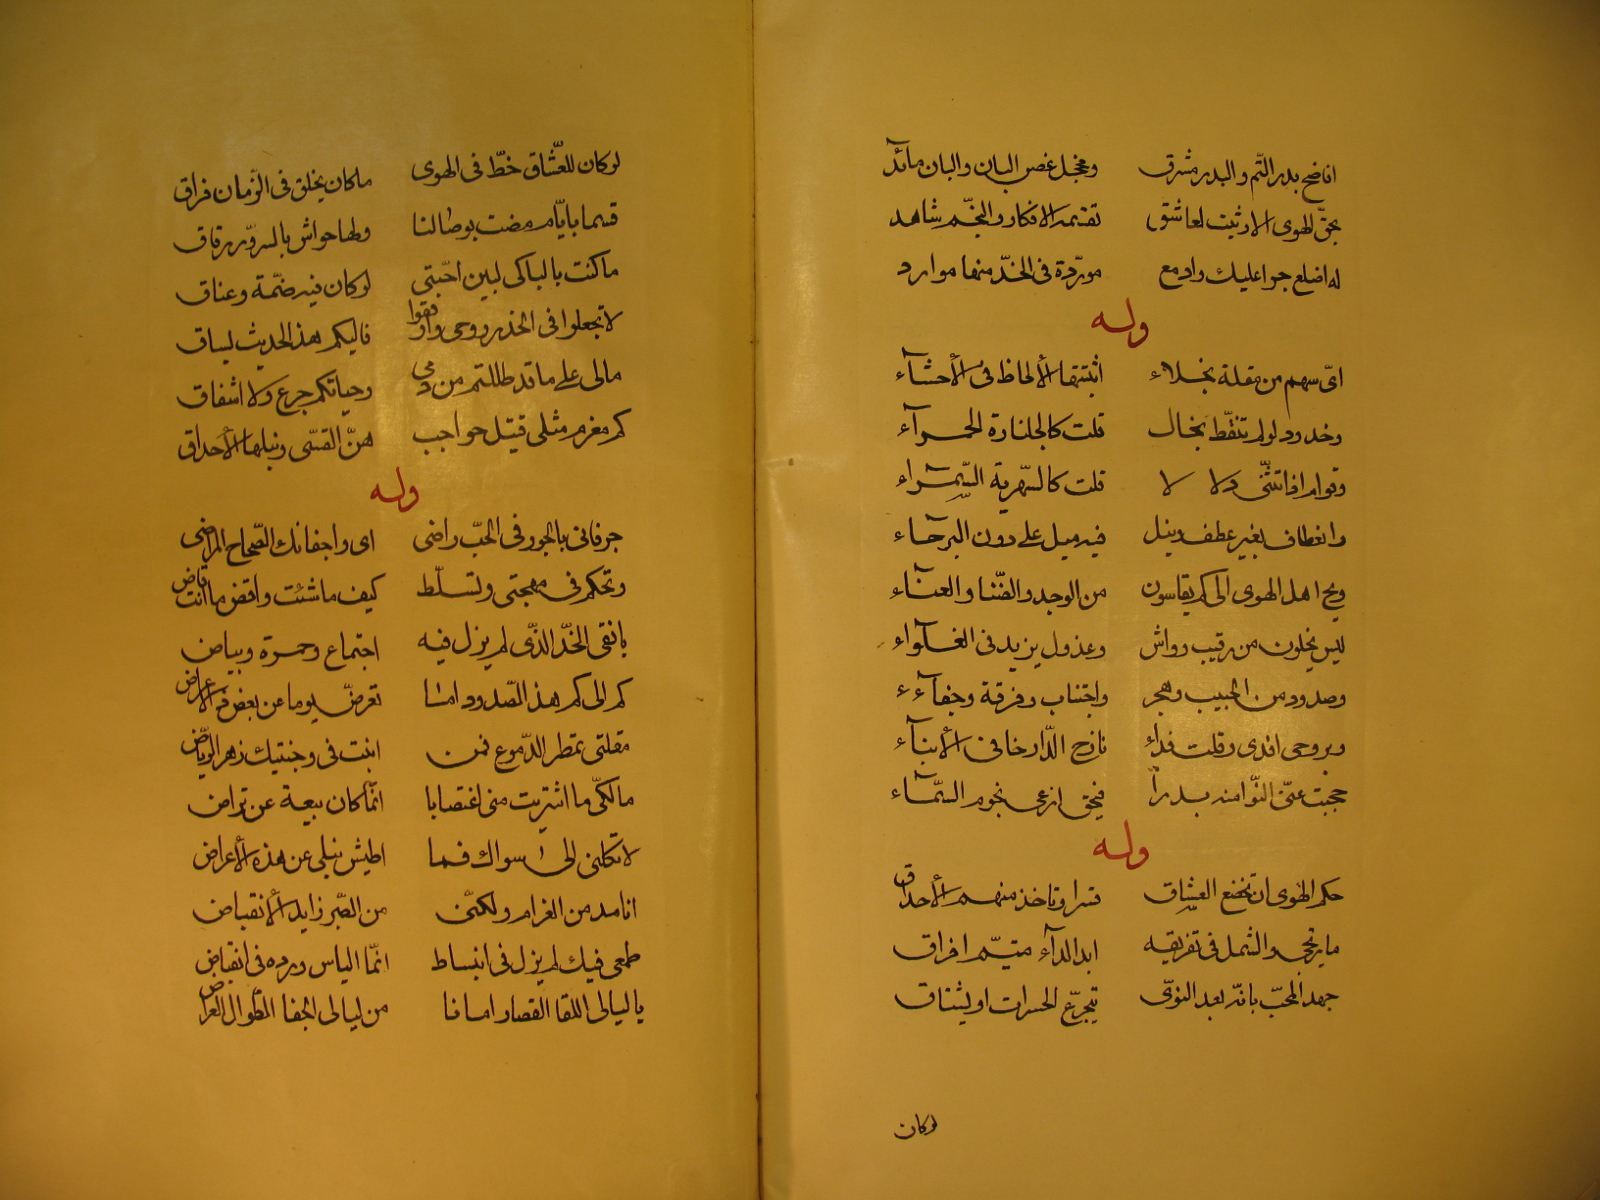 افاضح بدر التّم والبدر مشرق ومخجل غصن البان والبان مائد
بحقّ الهوى الا رثيت لعاشق تقسّمه الافكار والنجم شاهد
له اضلع جوا عليك وادمع مورّدة فى الخدّ منها موارد
وله
اىّ سهم من مقلة نجلاء اثبتتها الألحاظ فى الأحشآء
وخدود لو لم تنقّط بخال قلت كالجلنارة الحمرآء
وقوام اذا تثنّى دلالا قلت كالسّمهرية السّمرآء
وانعطاف بغير عطف وميل فيه ميل على دون البرحآء
ويح اهل الهوى الى كم يقاسون من الوجد والضّنا والعنآء
ليس يخلون من رقيب وواش وعذول يزيد فى الغلوآء
وصدود من الحبيب وهجر واجتناب وفرقة وجفآء
وبروحى افدى وقلت فداء نازح الدّار خافى الأنبآء
حجبت عنّى النّوا منه بدراً فبحقّ ارعى نجوم السّمآء
وله
حكم الهوى ان تخضع العشاق قسرا وتاخذ منهم الأحداق
ما يرتجى والشمل فى تفريقه ابد الدآء متيّم افراق
جهد المحبّ بانّه بعد النوّى يتجرّع الحسرات او يشتاق
لو كان
لو كان للعّشاق خطّ فى الهوى ما كان يخلق فى الزّمان فراق
قسما بايّام مضت بوصالنا ولها حواش بالسرور رقاق
ما كنت بالباكى لبين احّبتى لو كان فيه ضمّة وعناق
لا تجعلوا فى الخدر روحى وارفقوا فاليكم هذا الحديث يساق
مالى على ما قد طللتم من دمى وحياتكم جرع ولا اشفاق
كم مغرم مثلى قتيل حواجب هنّ القسّى ونبلها الأحداق
وله
جر فانى بالجور فى الحبّ راضى اى واجفانك الصّحاح المراضى
وتحكم فى مهجتى وتسلّط كيف ما شئت واقض ما انت قاض
يا نقى الخدّ الذّى لم يزل فيه اجتماع وحمرة وبياض
كم الى كم هذا الصّدود اما تعرضّ يوما عن بعض ذى الاعراض
مقلتى تمطر الدّموع فمن انبت فى وجنتيك زهر الرّياض
مالكّى ما اشتريت منى اغتصابا انّما كان بيعة عن تراض
لا تكلنى الى سواك فما اطيش نبلى عن هذه الأعراض
انا مد من الغرام ولكنّى من الصّبر زايد الأنقباض
طمعى فيك لم يزل فى انبساط انّما الياس ورده فى انقباض
يا ليالى اللقا القصار امانا من ليالى الجفا الطّوال العراض